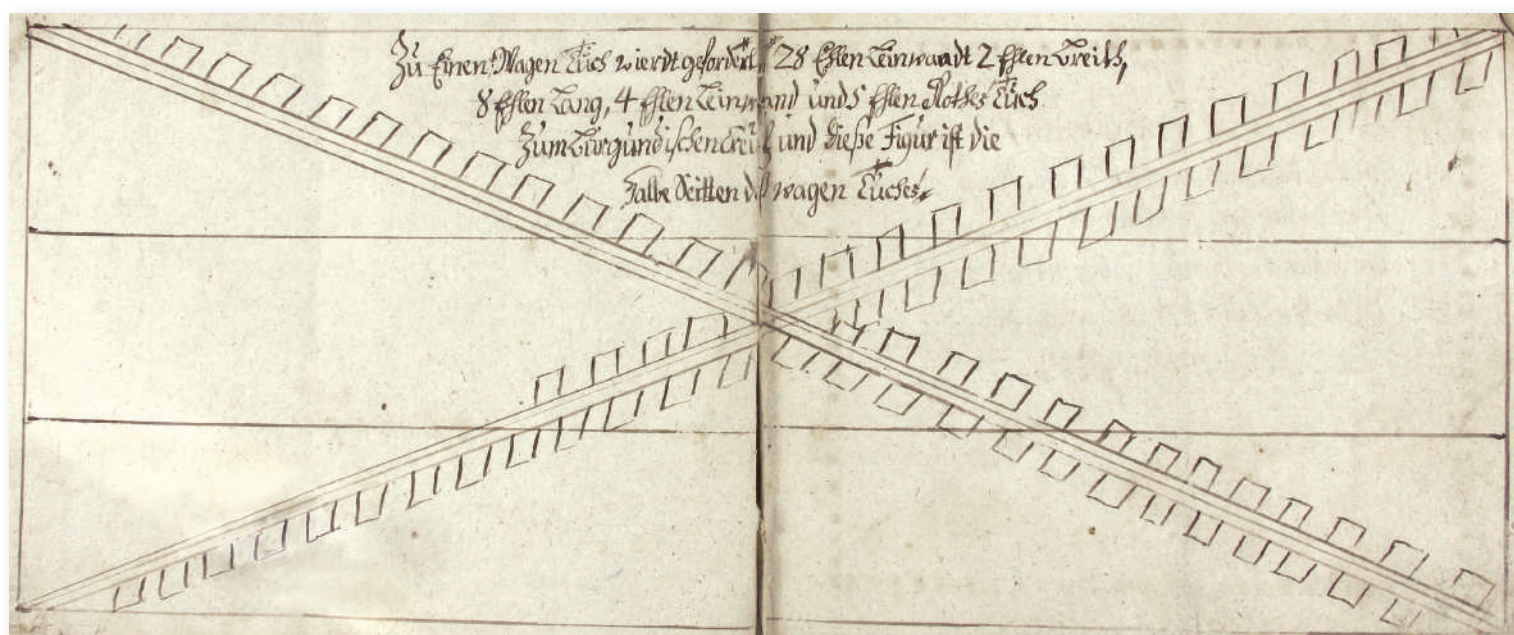 Zu Einen Wagen Tuch wierdt gefordert 28 Ehlen Leinwandt 2 Ehlen breith,
8 Ehlen Lang, 4 Ehlen Leinwand und 5 Ehlen Rothes Tuch
Zum Burgundischen Creutz und dieße Figur ist die
Halbe Seitten des wagen Tuches,